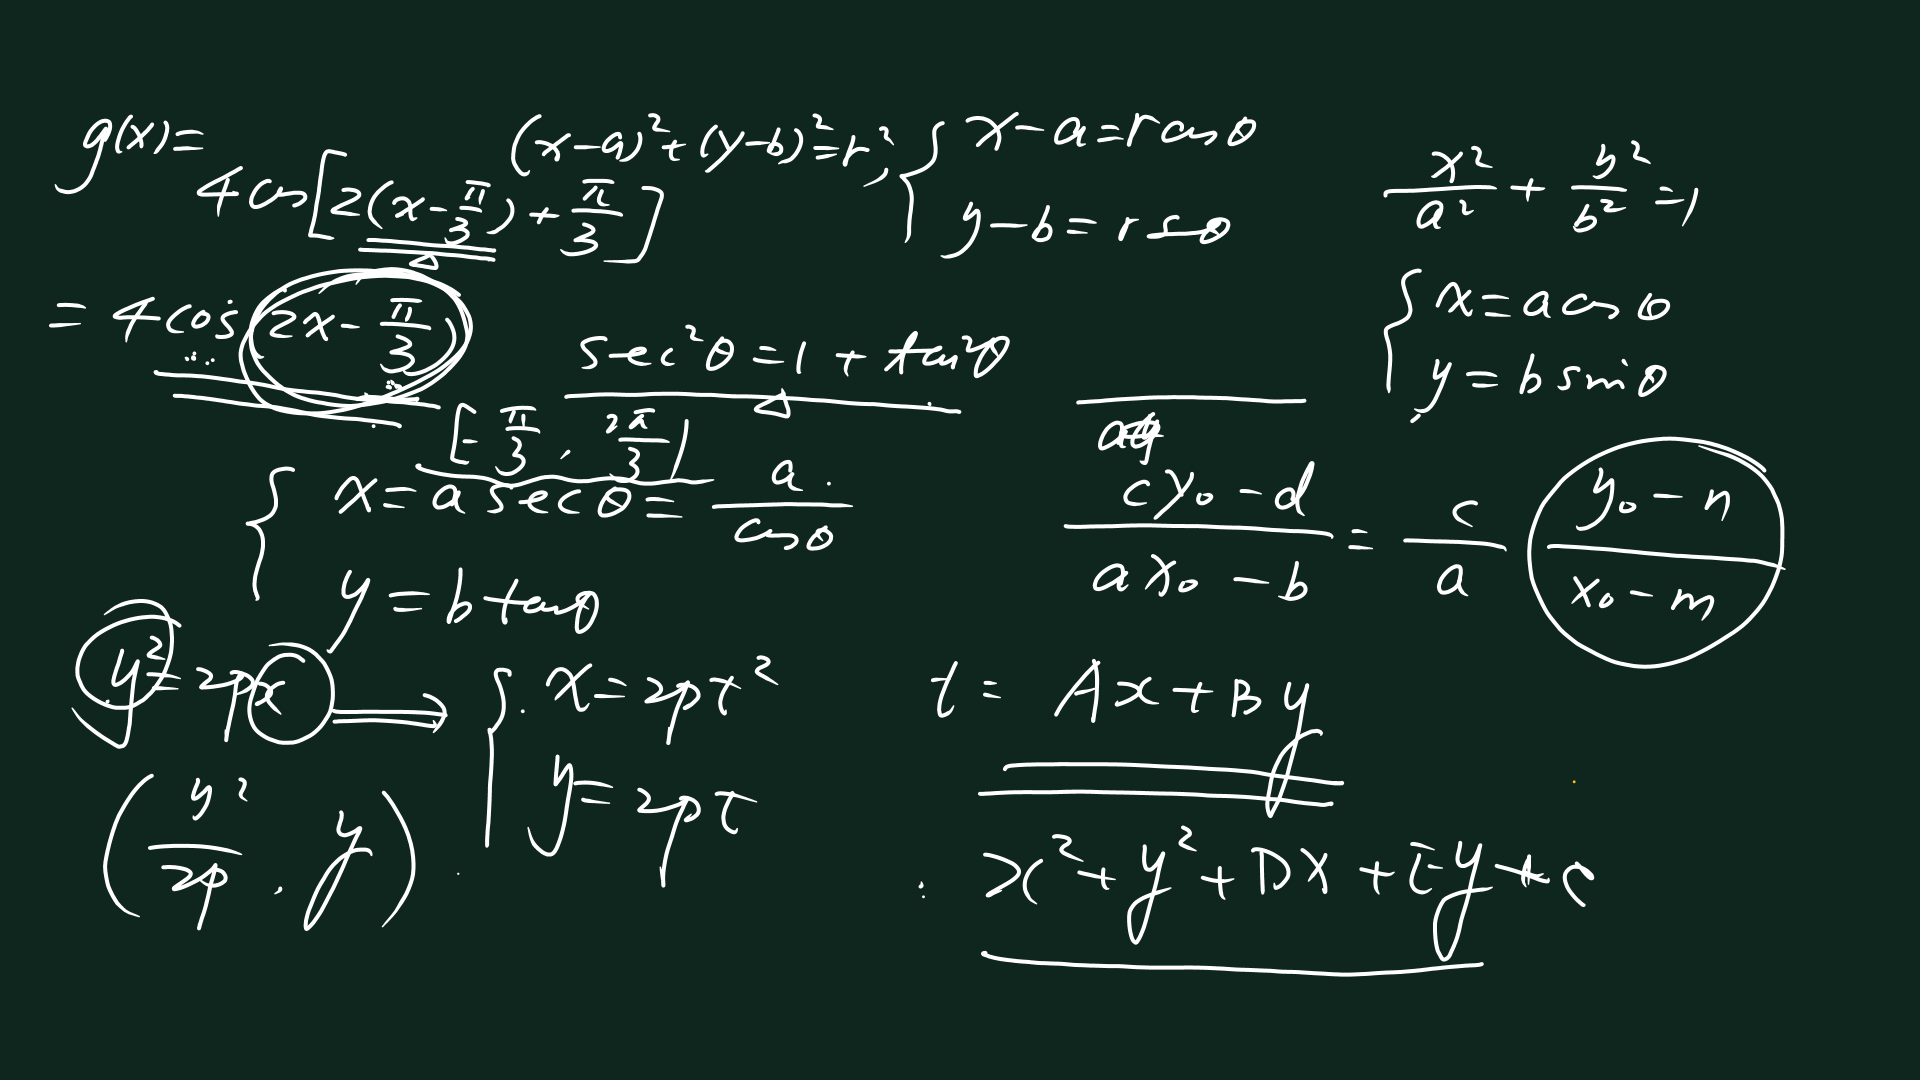 g(x)=
4cos[2(x-π/3)+π/3]
=4cos(2x-π/3)
[-π/3, 2π/3]
(x-a)²+(y-b)²=r²,
{ x-a=rcosθ
y-b=rsθ
x²/a² + y²/b² =1
{ x=acosθ
y=bsinθ
sec²θ=1+tan²θ
{ x=asecθ= a/cosθ
y=btanθ
cy₀-d/ax₀-b = c/a y₀-n/x₀-m
y²=2px ⟹ { x=2pt²
y=2pt
(y²/2p, y)
t= Ax+By
x²+y²+Dx+Ey+c